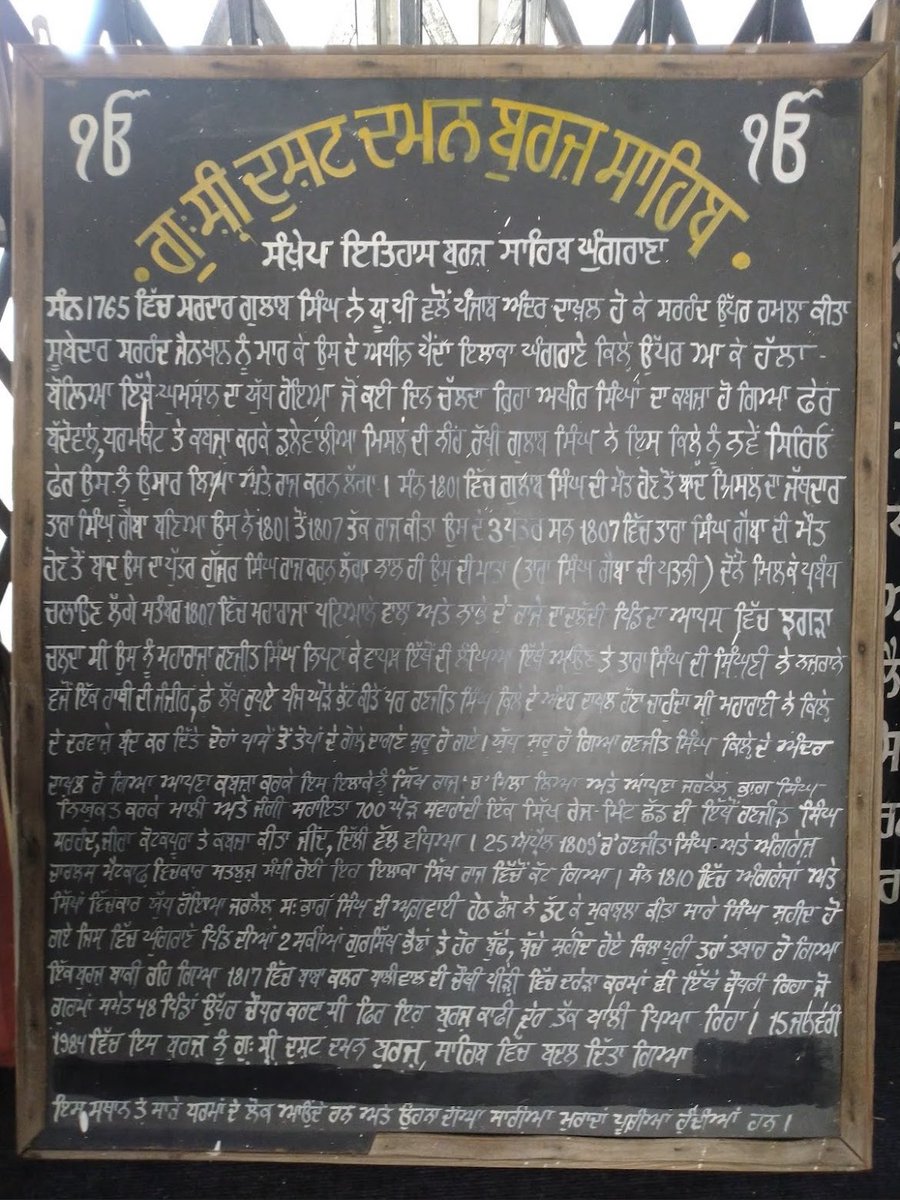 ੴ ੴ
ਗੁ: ਸ਼੍ਰੀ ਦੁਸ਼ਟ ਦਮਨ ਬੁਰਜ਼ ਸਾਹਿਬ
ਸੰਖੇਪ ਇਤਿਹਾਸ ਬੁਰਜ਼ ਸਾਹਿਬ ਘੁੰਗਰਾਣਾ
ਸੰਨ 1765 ਵਿੱਚ ਸਰਦਾਰ ਗੁਲਾਬ ਸਿੰਘ ਨੇ ਯੂ.ਪੀ ਵਲੋਂ ਪੰਜਾਬ ਅੰਦਰ ਦਾਖ਼ਲ ਹੋ ਕੇ ਸਰਹੰਦ ਉੱਪਰ ਹਮਲਾ ਕੀਤਾ
ਸੂਬੇਦਾਰ ਸਰਹੰਦ ਜੈਨਖਾਨ ਨੂੰ ਮਾਰ ਕੇ ਉਸ ਦੇ ਅਧੀਨ ਪੈਂਦਾ ਇਲਾਕਾ ਘੰਗਰਾਣੇ ਕਿਲੇ ਉੱਪਰ ਆ ਕੇ ਹੱਲਾ -
ਬੋਲਿਆ ਇੱਥੇ ਘਮਸਾਨ ਦਾ ਯੁੱਧ ਹੋਇਆ ਜੋ ਕਈ ਦਿਨ ਚੱਲਦਾ ਰਿਹਾ ਅਖੀਰ ਸਿੰਘਾਂ ਦਾ ਕਬਜਾ ਹੋ ਗਿਆ ਫੇਰ
ਬੱਦੋਵਾਲ, ਧਰਮਕੋਟ ਤੇ ਕਬਜ਼ਾ ਕਰਕੇ ਡਲੇਵਾਲੀਆ ਮਿਸਲ ਦੀ ਨੀਂਹ ਰੱਖੀ ਗੁਲਾਬ ਸਿੰਘ ਨੇ ਇਸ ਕਿਲੇ ਨੂੰ ਨਵੇਂ ਸਿਰਿਓਂ
ਫੇਰ ਉਸ ਨੂੰ ਉਸਾਰ ਲਿਆ ਅਤੇ ਰਾਜ ਕਰਨ ਲੱਗਾ । ਸੰਨ 1801 ਵਿੱਚ ਗੁਲਾਬ ਸਿੰਘ ਦੀ ਮੌਤ ਹੋਣ ਤੋਂ ਬਾਦ ਮਿਸਲ ਦਾ ਜੱਥੇਦਾਰ
ਤਾਰਾ ਸਿੰਘ ਗੈਬਾ ਬਣਿਆ ਉਸ ਨੇ 1801 ਤੋਂ 1807 ਤੱਕ ਰਾਜ ਕੀਤਾ ਉਸ ਦੇ 3 ਪੁਤਰ ਸਨ 1807 ਵਿੱਚ ਤਾਰਾ ਸਿੰਘ ਗੈਬਾ ਦੀ ਮੌਤ
ਹੋਣ ਤੋਂ ਬਾਦ ਉਸ ਦਾ ਪੁੱਤਰ ਗੁੱਜਰ ਸਿੰਘ ਰਾਜ ਕਰਨ ਲੱਗਾ ਨਾਲ ਹੀ ਉਸ ਦੀ ਮਾਤਾ (ਤਾਰਾ ਸਿੰਘ ਗੈਬਾ ਦੀ ਪਤਨੀ) ਦੋਨੋ ਮਿਲ ਕੇ ਪ੍ਰਬੰਧ
ਚਲਾਉਣ ਲੱਗੇ ਸਤੰਬਰ 1807 ਵਿੱਚ ਮਹਾਰਾਜਾ ਪਟਿਆਲਾ ਵਾਲਾ ਅਤੇ ਨਾਭੇ ਦੇ ਰਾਜੇ ਦਾ ਦੁਲੱਦੀ ਪਿੰਡ ਦਾ ਆਪਸ ਵਿੱਚ ਝਗੜਾ
ਚਲਦਾ ਸੀ ਉਸ ਨੂੰ ਮਹਾਰਾਜਾ ਰਣਜੀਤ ਸਿੰਘ ਨਿਪਟਾ ਕੇ ਵਾਪਸ ਇੱਥੋਂ ਦੀ ਲੰਘਿਆ ਇੱਥੇ ਆਉਣ ਤੇ ਤਾਰਾ ਸਿੰਘ ਦੀ ਸਿੰਘਣੀ ਨੇ ਨਜ਼ਰਾਨੇ
ਵਜੋਂ ਇੱਕ ਹਾਥੀ ਦੀ ਜੰਜੀਰ, ਛੇ ਲੱਖ ਰੁਪਏ ਪੰਜ ਘੋੜੇ ਭੇਟ ਕੀਤੇ ਪਰ ਰਣਜੀਤ ਸਿੰਘ ਕਿਲੇ ਦੇ ਅੰਦਰ ਦਾਖਲ ਹੋਣਾ ਚਾਹੁੰਦਾ ਸੀ ਮਹਾਰਾਣੀ ਨੇ ਕਿਲੇ
ਦੇ ਦਰਵਾਜੇ ਬੰਦ ਕਰ ਦਿੱਤੇ ਦੋਹਾਂ ਪਾਸੋਂ ਤੋਂ ਤੋਪਾਂ ਦੇ ਗੋਲੇ ਦਾਗਣੇ ਸ਼ੁਰੂ ਹੋ ਗਏ । ਯੁੱਧ ਸ਼ੁਰੂ ਹੋ ਗਿਆ ਰਣਜੀਤ ਸਿੰਘ ਕਿਲੇ ਦੇ ਅੰਦਰ
ਦਾਖਲ ਹੋ ਗਿਆ ਆਪਣਾ ਕਬਜਾ ਕਰਕੇ ਇਸ ਇਲਾਕੇ ਨੂੰ ਸਿੱਖ ਰਾਜ 'ਚ' ਮਿਲਾ ਲਿਆ ਅਤੇ ਆਪਣਾ ਜਰਨੈਲ ਭਾਗ ਸਿੰਘ-
ਨਿਯੁਕਤ ਕਰਕੇ ਮਾਲੀ ਅਤੇ ਜੰਗੀ ਸਹਾਇਤਾ 700 ਘੋੜ ਸਵਾਰਾਂ ਦੀ ਇੱਕ ਸਿੱਖ ਰੇਜ-ਮਿੰਟ ਛੱਡ ਦੀ ਇੱਥੋਂ ਰਣਜੀਤ ਸਿੰਘ
ਸਰਹੰਦ, ਜੀਰਾ ਕੋਟਕਪੂਰਾ ਤੇ ਕਬਜਾ ਕੀਤਾ ਜੀਂਦ, ਦਿੱਲੀ ਵੱਲ ਵਧਿਆ । 25 ਅਪ੍ਰੈਲ 1809 'ਚ' ਰਣਜੀਤਾ ਸਿੰਘ ਅਤੇ ਅੰਗਰੇਜ਼
ਚਾਰਲਸ ਮੈਟਕਾਫ਼ ਵਿਚਕਾਰ ਸਤਲੁਜ ਸੰਧੀ ਹੋਈ ਇਹ ਇਲਾਕਾ ਸਿੱਖ ਰਾਜ ਵਿੱਚੋਂ ਕੱਟ ਗਿਆ । ਸੰਨ 1810 ਵਿੱਚ ਅੰਗਰੇਜਾਂ ਅਤੇ
ਸਿੱਖਾਂ ਵਿੱਚਕਾਰ ਯੁੱਧ ਹੋਇਆ ਜਰਨੈਲ ਸ: ਭਾਗ ਸਿੰਘ ਦੀ ਅਗਵਾਈ ਹੇਠ ਫੌਜ ਨੇ ਡੱਟ ਕੇ ਮੁਕਾਬਲਾ ਕੀਤਾ ਸਾਰੇ ਸਿੰਘ ਸ਼ਹੀਦ ਹੋ
ਗਏ ਜਿਸ ਵਿੱਚ ਘੁੰਗਰਾਣੇ ਪਿੰਡ ਦੀਆਂ 2 ਸਕੀਆਂ ਗੁਰਸਿੱਖ ਭੈਣਾਂ ਤੇ ਹੋਰ ਬੁੱਢੇ, ਬੱਚੇ ਸ਼ਹੀਦ ਹੋਏ ਕਿਲਾ ਪੂਰੀ ਤਰ੍ਹਾਂ ਤਬਾਹ ਹੋ ਗਿਆ
ਇੱਕ ਬੁਰਜ ਬਾਕੀ ਰਹਿ ਗਿਆ 1817 ਵਿੱਚ ਬਾਬਾ ਕਲਰ ਧਾਲੀਵਾਲ ਦੀ ਚੌਥੀ ਪੀੜ੍ਹੀ ਵਿੱਚ ਦਰੋੜਾ ਕਰਮਾਂ ਵੀ ਇੱਥੇ ਚੌਧਰੀ ਰਿਹਾ ਜੋ
ਗੁਰਮਾਂ ਸਮੇਤ 48 ਪਿੰਡਾਂ ਉੱਪਰ ਚੌਧਰ ਕਰਦਾ ਸੀ ਫਿਰ ਇਹ ਬੁਰਜ ਕਾਫੀ ਦੇਰ ਤੱਕ ਖਾਲੀ ਪਿਆ ਰਿਹਾ । 15 ਜਨਵਰੀ
1984 ਵਿੱਚ ਇਸ ਬੁਰਜ਼ ਨੂੰ ਗੁ: ਸ਼੍ਰੀ ਦੁਸ਼ਟ ਦਮਨ ਬੁਰਜ਼ ਸਾਹਿਬ ਵਿੱਚ ਬਦਲ ਦਿੱਤਾ ਗਿਆ
ਇਸ ਸਥਾਨ ਤੇ ਸਾਰੇ ਧਰਮਾਂ ਦੇ ਲੋਕ ਆਉਂਦੇ ਹਨ ਅਤੇ ਉਹਨਾ ਦੀਆ ਸਾਰੀਆ ਮੁਰਾਦਾਂ ਪੂਰੀਆ ਹੁੰਦੀਆਂ ਹਨ ।